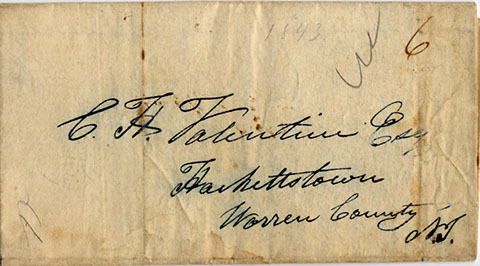 1843
6
C. H. Valentine Esq
Hackettstown
Warren County
N.J.